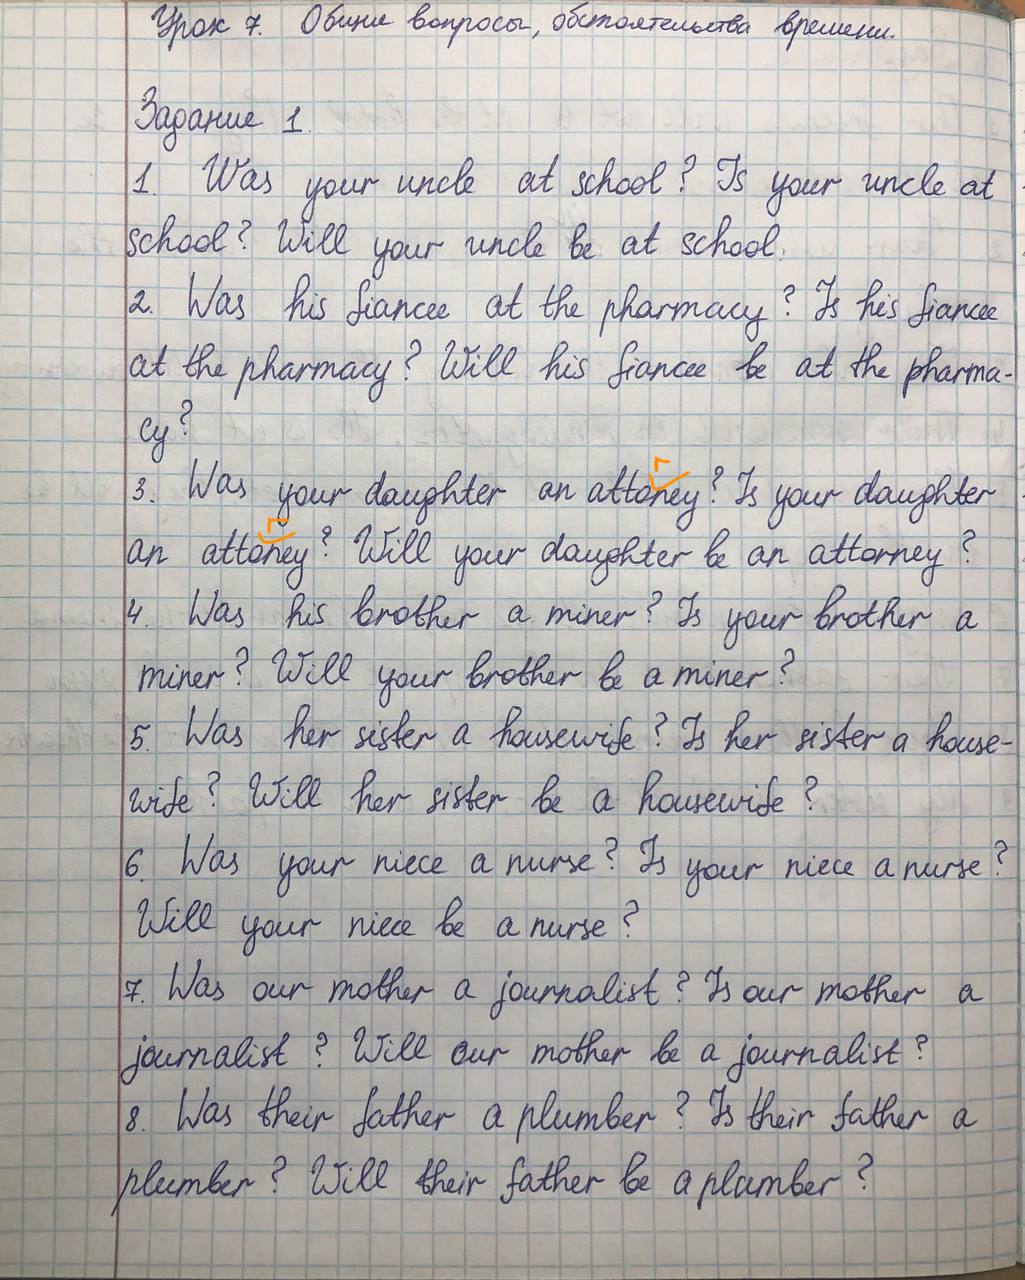 Урок 7. Общие вопросы, обстоятельства времени.
Задание 1.
1. Was your uncle at school? Is your uncle at
school? Will your uncle be at school.
2. Was his fiancee at the pharmacy? Is his fiancee
at the pharmacy? Will his fiancee be at the pharma-
cy?
r
3. Was your daughter an attoney? Is your daughter
r
an attoney? Will your daughter be an attorney?
4. Was his brother a miner? Is your brother a
miner? Will your brother be a miner?
5. Was her sister a housewife? Is her sister a house-
wife? Will her sister be a housewife?
6. Was your niece a nurse? Is your niece a nurse?
Will your niece be a nurse?
7. Was our mother a journalist? Is our mother a
journalist? Will our mother be a journalist?
8. Was their father a plumber? Is their father a
plumber? Will their father be a plumber?